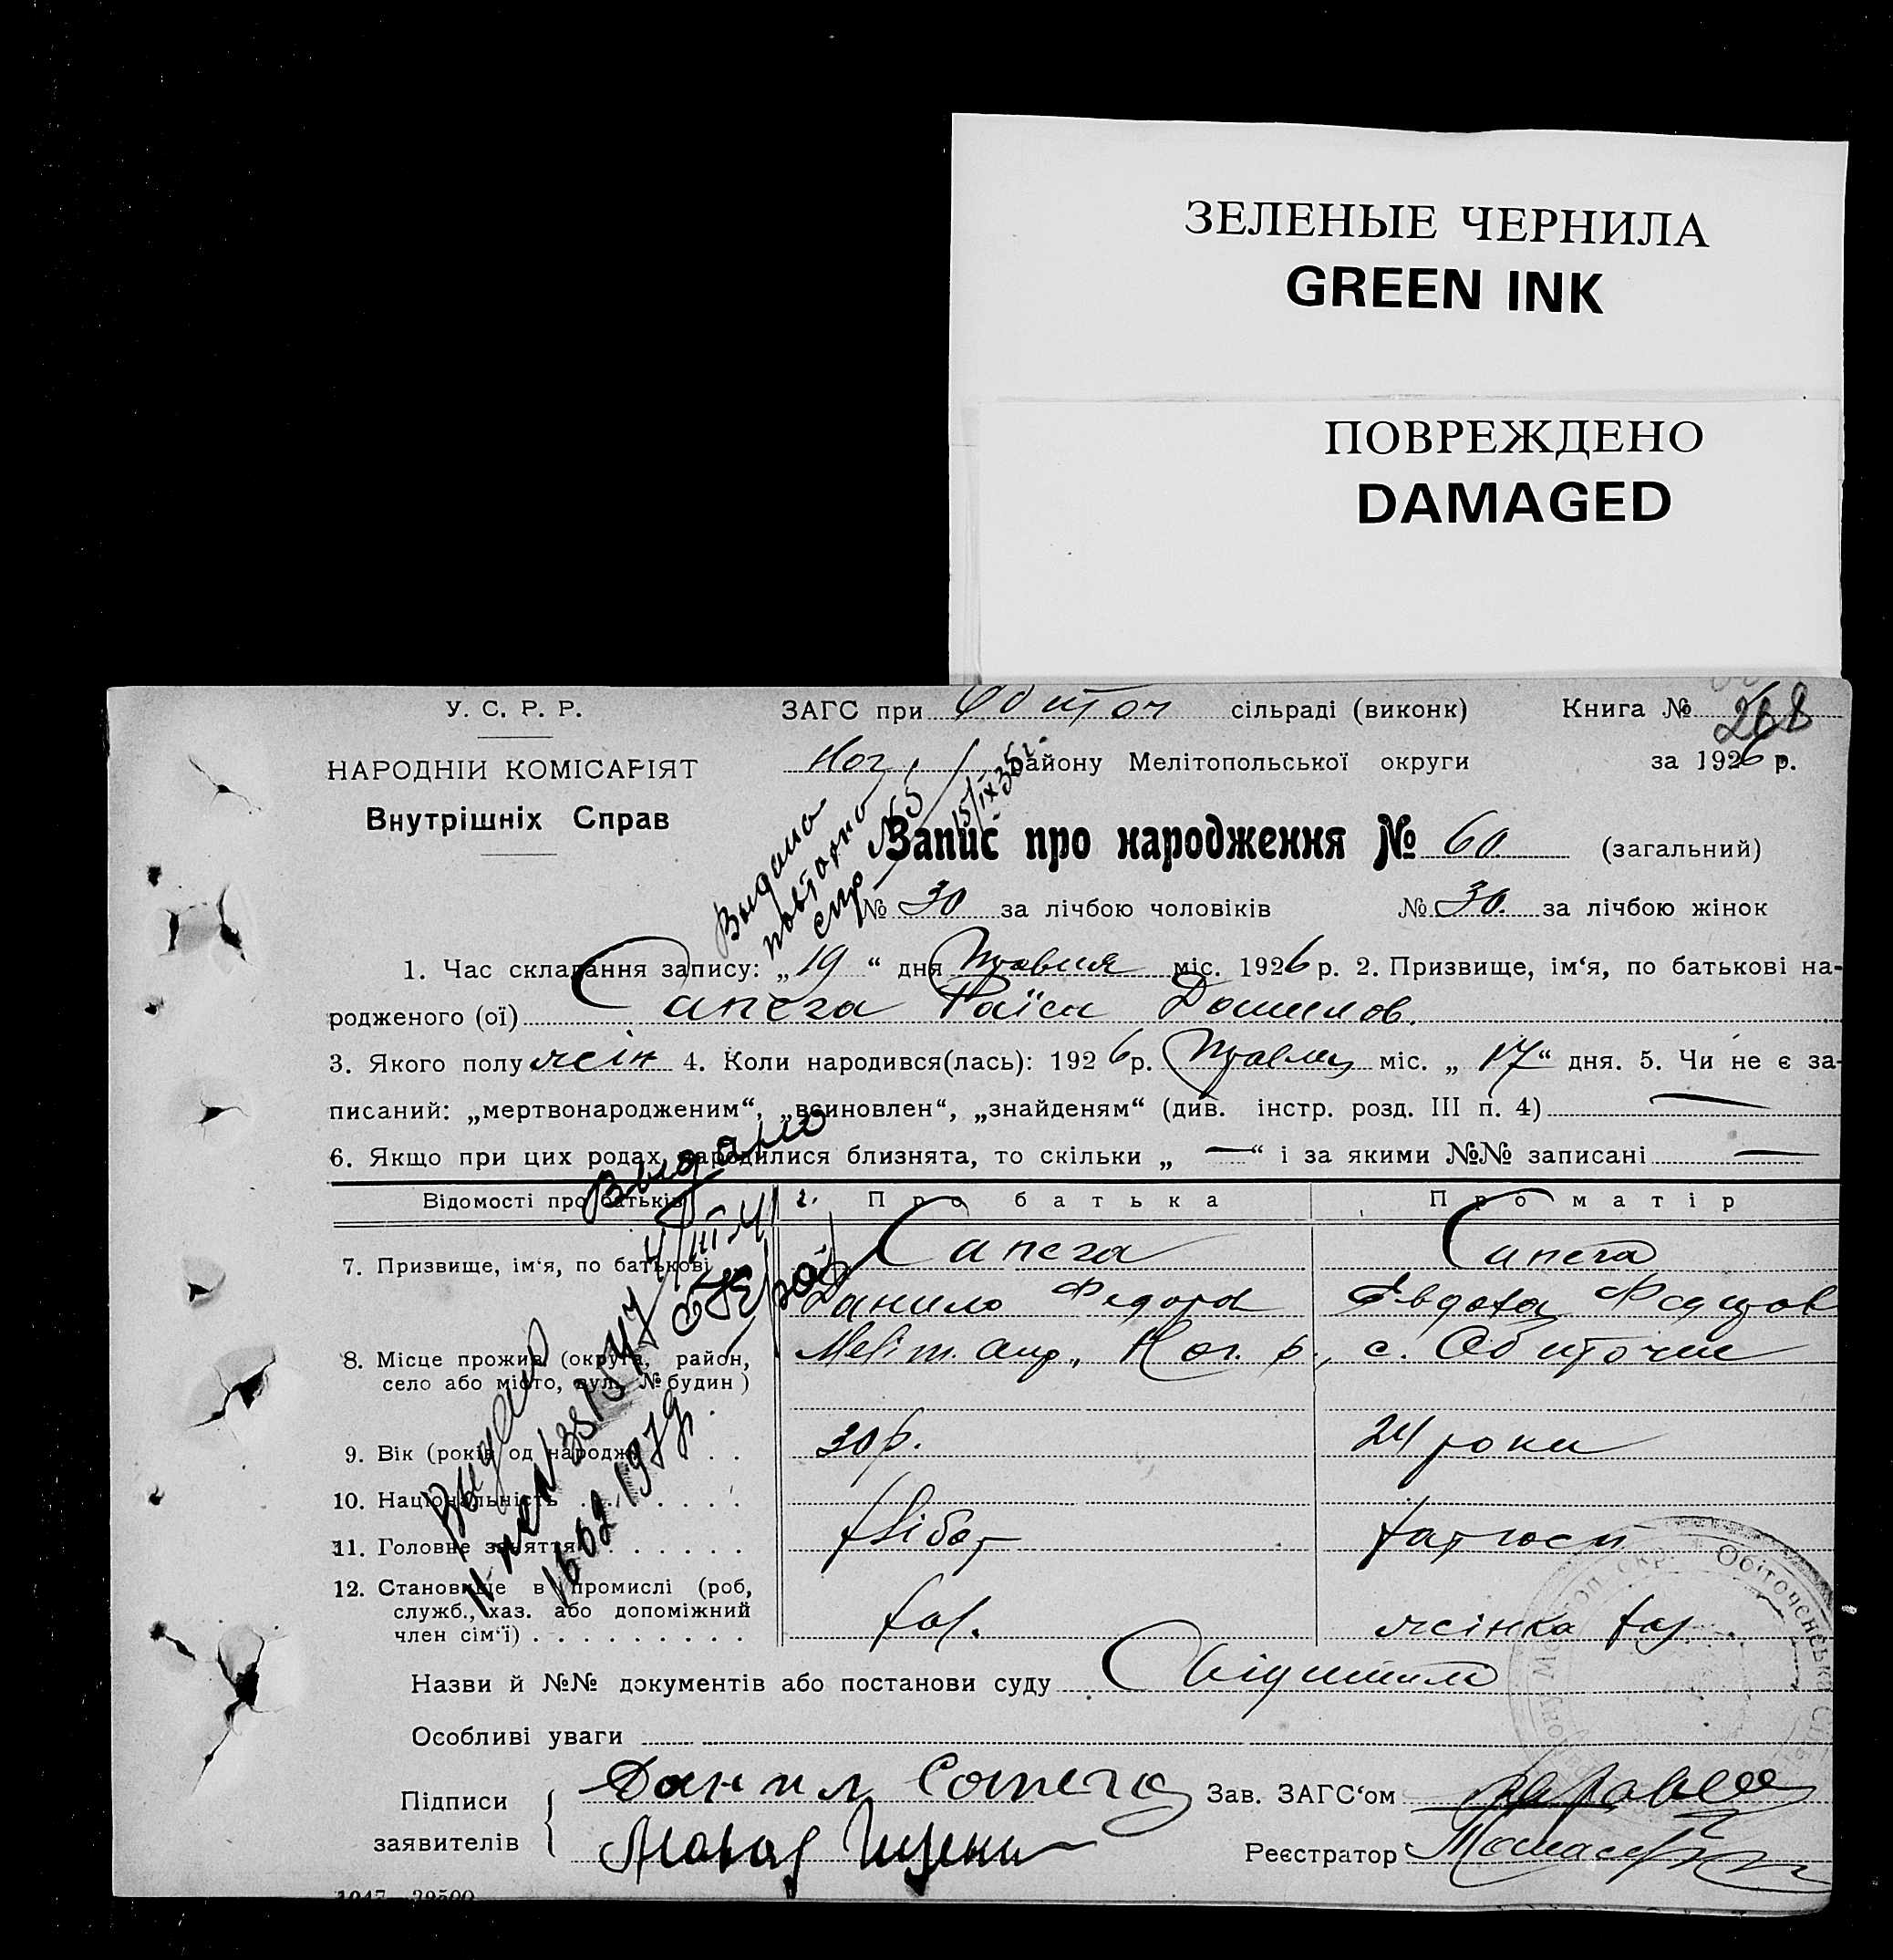 ЗЕЛЕНЫЕ ЧЕРНИЛА
GREEN INK
ПОВРЕЖДЕНО
DAMAGED
У. С. Р. Р.
ЗАГС при Обиточ сільраді (виконк) Книга № 268
НАРОДНІИ КОМІСАРІЯТ
Ног. району Мелітопольської округи за 1926 р.
Внутрішніх Справ
Запис про народження № 60 (загальний)
№ 30 за лічбою чоловіків № 30. за лічбою жінок
Выдано
повторно
спр № 5
15/IX 35г.
1. Час складання запису: „19“ дня Травня міс. 1926 р. 2. Призвище, ім‘я, по батькові на-
родженого (ої) Сапега Раїса Данилов.
3. Якого полу жін 4. Коли народився(лась): 1926 р. Травня міс. „17“ дня. 5. Чи не є за-
писаний: „мертвонародженим“, „всиновлен“, „знайденям“ (див. інстр. розд. III п. 4) —
6. Якщо при цих родах народилися близнята, то скільки „—“ і за якими №№ записані —
Выдано
Відомості про батьків Про батька Про матір
7. Призвище, ім‘я, по батькові Сапега Сапега
Данило Федоров Евдоха
8. Місце прожив. (округа, район, Меліт. окр., Ног. р., с. Обиточне
село або місто, вул. № будин)
9. Вік (років од народж. 30 р. 24 роки
10. Національність
11. Головне заняття хлібор
12. Становище в промислі (роб,
служб., хаз. або допоміжний
член сім‘ї) хаз. жінка хаз.
Видано
1602 1977
Назви й №№ документів або постанови суду
Особливі уваги
Підписи
заявителів
Данил Сапега
Зав. ЗАГС‘ом
Реєстратор
1047—39500